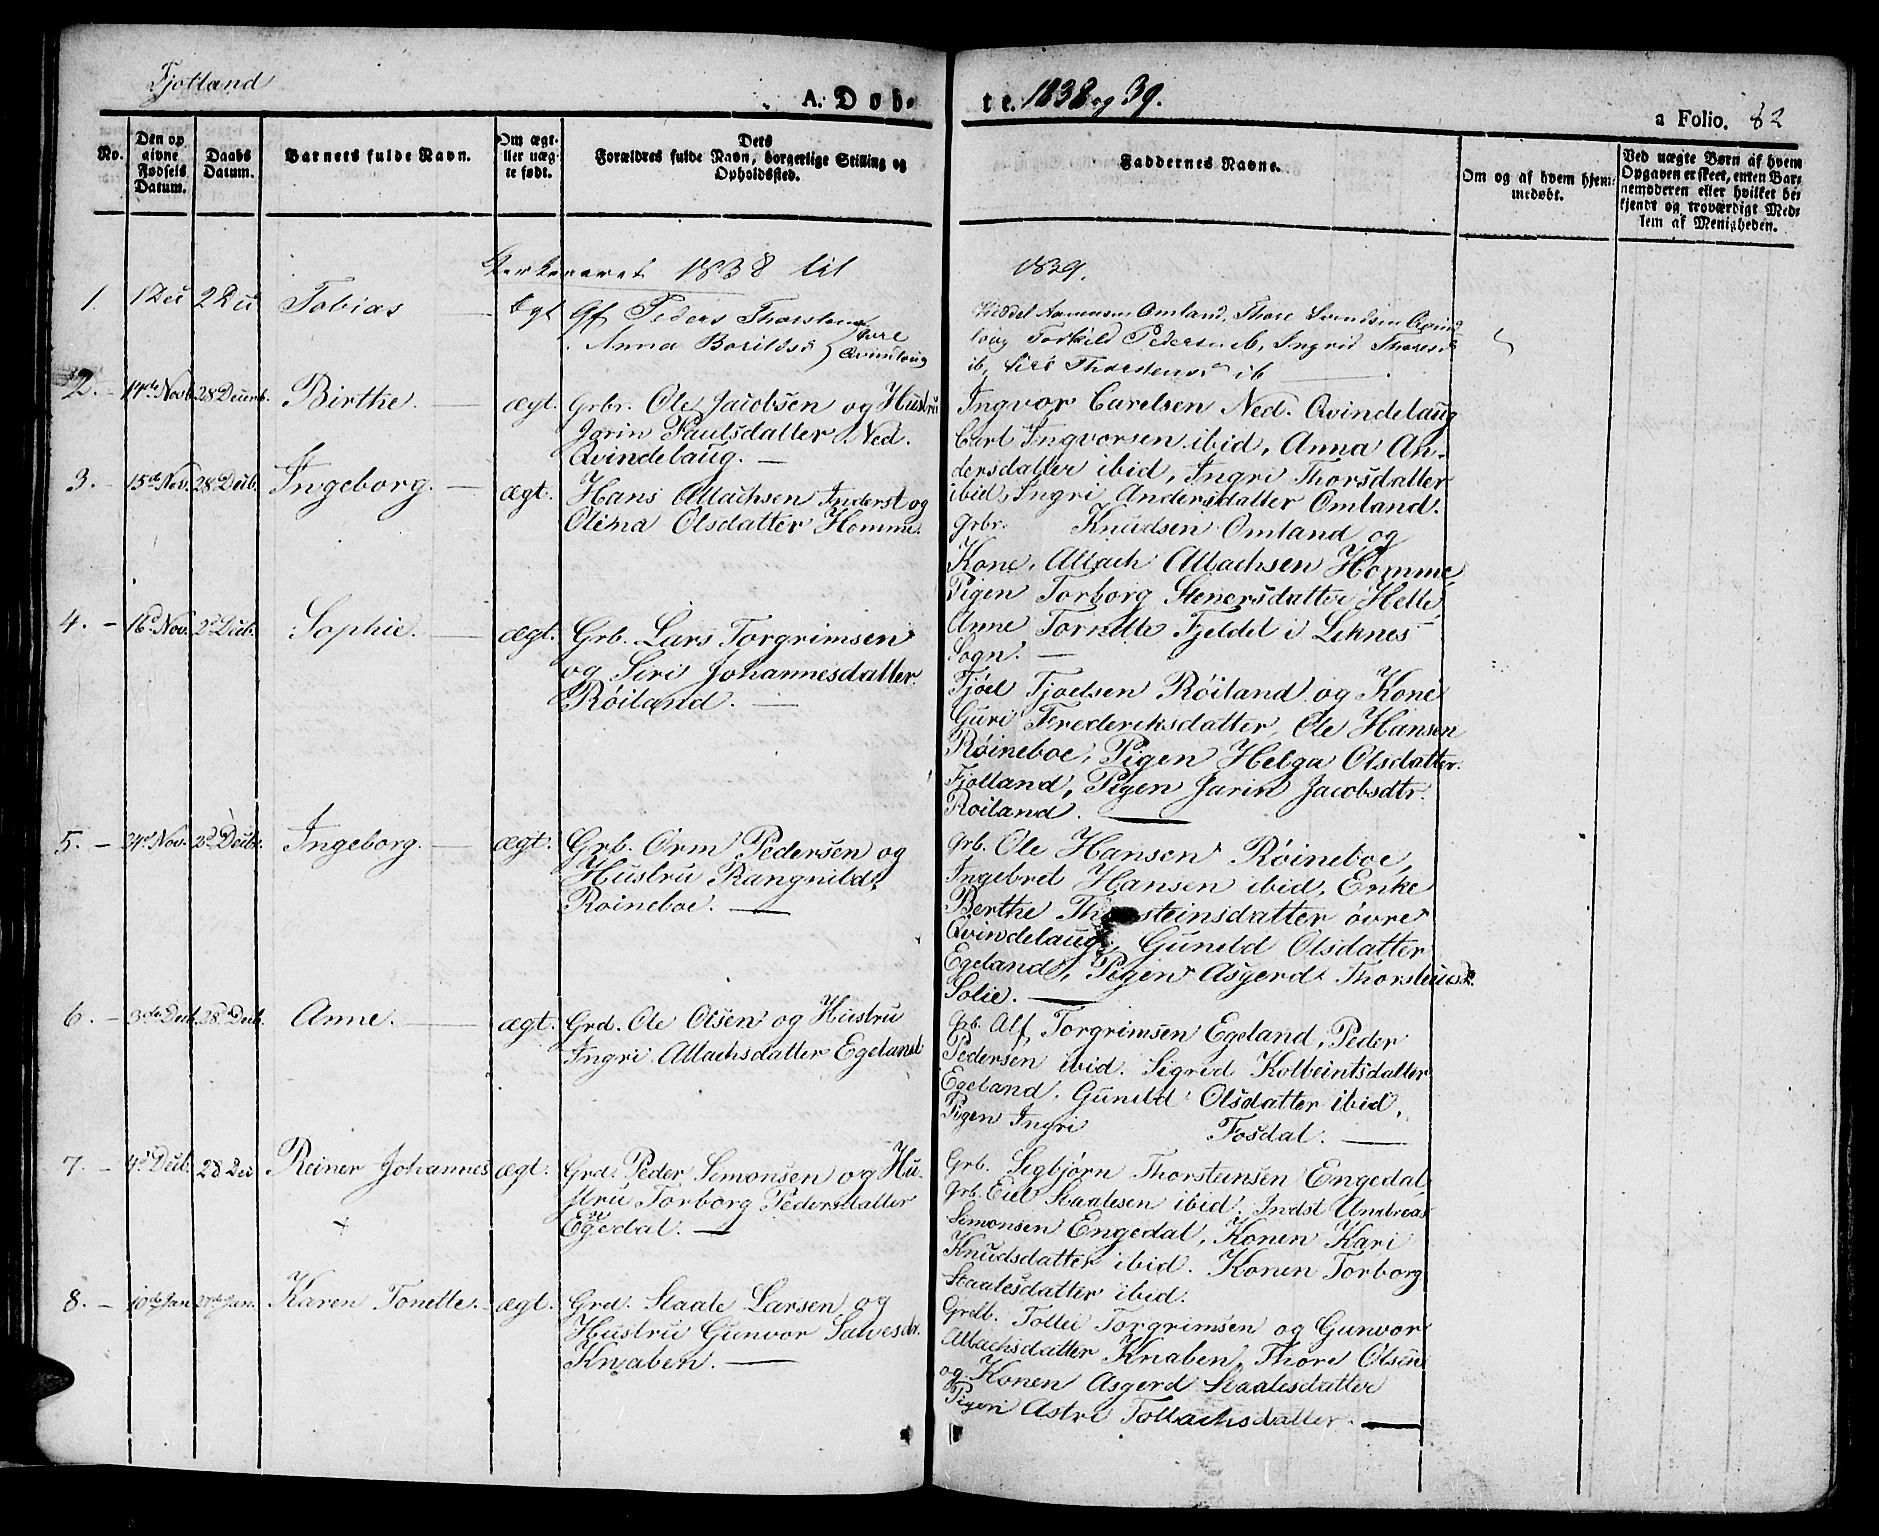 Fjotland
A. Døb-
te. 1838 og 39.
a Folio. 82
No.
Den op
givne
Fødsels
Datum.
Daabs
Datum.
Barnets fulde Navn.
Om ægt
ller uæg-
te født.
Dets
Forældres fulde Navn, borgerlige Stilling og
Opholdssted.
Faddernes Navne.
Om og af hvem hjem-
medøbt.
Ved uægte Børn af hvem
Opgaven er skeet, enten Bar-
nemoderen eller hvilket be-
kjendt og troværdigt Med-
lem af Menigheden.
Kirkeaaret 1838 til 1839.
1. 1 Dec 2 Dec Tobias ægt gf Peder Thorsten
Anna Borildsd øvre
Qvindlaug
Aamasen Omland, Thore Svendsen Qvind
laug Torkild Pedersen ib, Ingrid Thores
ib, Siri Thorstens ib
2. - 14de Novb. 28 Decemb. Birthe. ægt. Grbr. Ole Jacobsen og Hustru
Jorin Paulsdatter Ned.
Qvindelaug. —
Ingvor Carelsen Ned. Qvindelaug
Carl Ingvorsen ibid, Anna An-
dersdatter ibid, Ingri Thorsdatter
ibid, Ingri Andersdatter Omland.
3. - 15de Nov. 28 Decb. Ingeborg. — ægt. Hans Atlachsen Inderst og
Olina Olsdatter Homme.
Grbr. Knudsen Omland og
Kone, Atlach Atlachsen Homme,
Pigen Torborg Stenersdatter Helle
Anne Tornette Fjeldet i Leknes
Sogn. —
4. - 16d Nov. 2d Decb. Sophie. — ægt. Grb. Lars Torgrimsen
og Siri Johannesdatter
Røiland. —
Tjøel Tjoelsen Røiland og Kone
Guri Frederiksdatter, Ole Hansen
Røineboe, Pigen Helga Olsdatter
Fjotland, Pigen Jarin Jacobsdtr.
Røiland. —
5. - 24d Nov. 2d Decbr. Ingeborg. — ægt. Grb. Orm Pedersen og
Hustru Rangnild
Røineboe. —
Grb. Ole Hansen Røineboe,
Ingebret Hansen ibid, Enke
Berthe Thorsteinsdatter øvre
Qvindelaug, Gunild Olsdatter
Egeland, Pigen Asgerd Thorsteinsd.
Solie. —
6. - 3de Decb. 28d Decb. Anne. — ægt. Grd. Ole Olsen og Hustru
Ingri Atlachsdatter Egeland
Grb. Alf Torgrimsen Egeland, Peder
Pedersen ibid. Sigrid Kolbeintsdatter
Egeland, Gunild Olsdatter ibid,
Pigen Ingri Fosdal. —
7. - 4d Decb. 28 Dec Reiner Johannes ægt. Grd. Peder Simonsen og Hu-
stru Torborg Pedersdatter
Egedal. —
Grb. Segbjørn Thorsteinsen Engedal,
Grb. Eiel Staalesen ibid. Indst Andreas
Simonsen Engedal, Konen Kari
Knudsdatter ibid. Konen Torborg
Staalesdatter ibid.
8. - 10de Jan 27de Jan. Karen Tonette. ægt. Grd. Staale Larsen og
Hustru Gunvor Salvesdr.
Knaben. —
Grdb. Tollei Torgrimsen og Gunvor
Atlachsdatter Knaben, Thore Olsen
og Konen Asgerd Staalesdatter
Pigen Astri Tollachsdatter. —